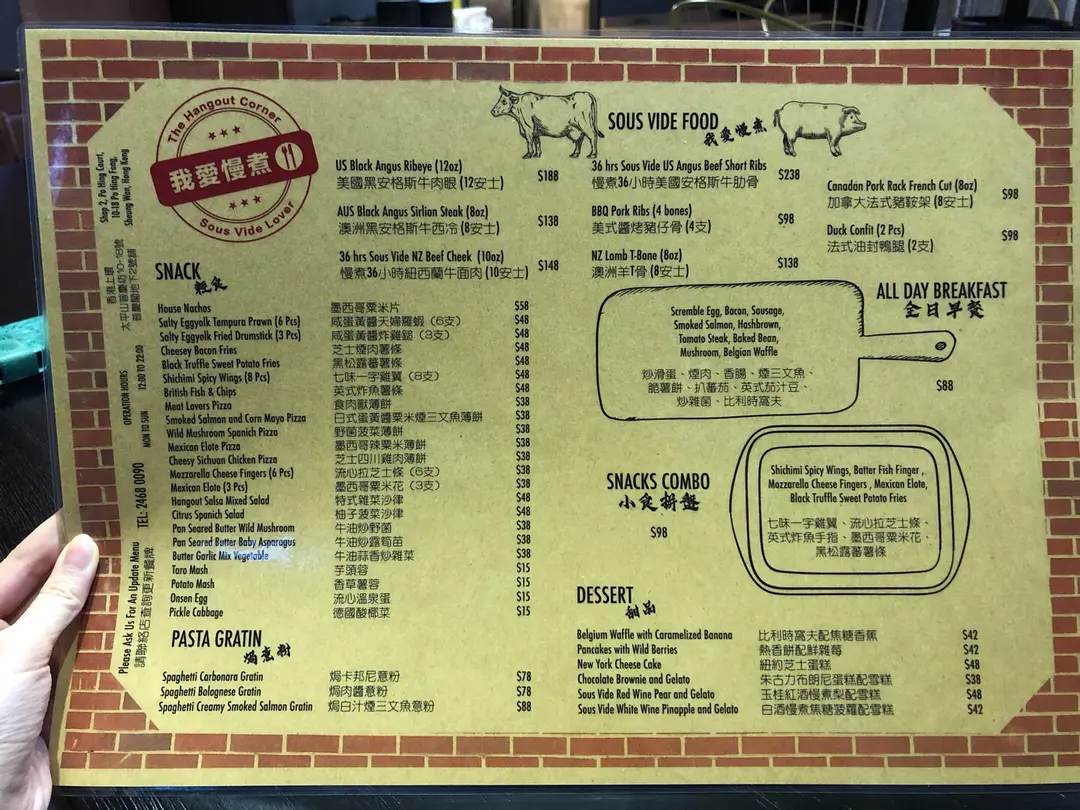 The Hangout Corner
我愛慢煮
Sous Vide Lover
Shop 2, Po Hing Court,
10-18 Po Hing Fong,
Sheung Wan, Hong Kong
香港上環
太平山普慶坊10-18號
普慶閣地下2號舖
OPERATION HOURS
MON TO SUN 12:00 TO 22:00
TEL: 2468 0090
Please Ask Us For An Update Menu
請聯絡店查詢更新餐牌
SOUS VIDE FOOD
我愛慢煮
US Black Angus Ribeye (12oz) $188
美國黑安格斯牛肉眼 (12安士)
AUS Black Angus Sirlion Steak (8oz) $138
澳洲黑安格斯牛西冷 (8安士)
36 hrs Sous Vide NZ Beef Cheek (10oz) $148
慢煮36小時紐西蘭牛面肉 (10安士)
36 hrs Sous Vide US Angus Beef Short Ribs $238
慢煮36小時美國安格斯牛肋骨
BBQ Pork Ribs (4 bones) $98
美式醬烤豬仔骨 (4支)
NZ Lamb T-Bone (8oz) $138
澳洲羊T骨 (8安士)
Canadan Pork Rack French Cut (8oz) $98
加拿大法式豬鞍架 (8安士)
Duck Confit (2 Pcs) $98
法式油封鴨腿 (2支)
SNACK
輕食
House Nachos 墨西哥粟米片 $58
Salty Eggyolk Tempura Prawn (6 Pcs) 咸蛋黃醬天婦羅蝦（6支） $48
Salty Eggyolk Fried Drumstick (3 Pcs) 咸蛋黃醬炸雞鎚（3支） $48
Cheesey Bacon Fries 芝士煙肉薯條 $48
Black Truffle Sweet Potato Fries 黑松露蕃薯條 $48
Shichimi Spicy Wings (8 Pcs) 七味一字雞翼（8支） $48
British Fish & Chips 英式炸魚薯條 $48
Meat Lovers Pizza 食肉獸薄餅 $38
Smoked Salmon and Corn Mayo Pizza 日式蛋黃醬粟米煙三文魚薄餅 $38
Wild Mushroom Spanich Pizza 野菌菠菜薄餅 $38
Mexican Elote Pizza 墨西哥辣粟米薄餅 $38
Cheesy Sichuan Chicken Pizza 芝士四川雞肉薄餅 $38
Mozzarella Cheese Fingers (6 Pcs) 流心拉芝士條（6支） $38
Mexican Elote (3 Pcs) 墨西哥粟米花（3支） $38
Hangout Salsa Mixed Salad 特式雜菜沙律 $48
Citrus Spanich Salad 柚子菠菜沙律 $48
Pan Seared Butter Wild Mushroom 牛油炒野菌 $38
Pan Seared Butter Baby Asparagus 牛油炒露筍苗 $38
Butter Garlic Mix Vegetable 牛油蒜香炒雜菜 $38
Taro Mash 芋頭蓉 $15
Potato Mash 香草薯蓉 $15
Onsen Egg 流心溫泉蛋 $15
Pickle Cabbage 德國酸椰菜 $15
PASTA GRATIN
焗意粉
Spaghetti Carbonara Gratin 焗卡邦尼意粉 $78
Spaghetti Bolognese Gratin 焗肉醬意粉 $78
Spaghetti Creamy Smoked Salmon Gratin 焗白汁煙三文魚意粉 $88
ALL DAY BREAKFAST
全日早餐
Scremble Egg, Bacon, Sausage,
Smoked Salmon, Hashbrown,
Tomato Steak, Baked Bean,
Mushroom, Belgian Waffle
炒滑蛋、煙肉、香腸、煙三文魚、
脆薯餅、扒蕃茄、英式茄汁豆、
炒雜菌、比利時窩夫
$88
SNACKS COMBO
小食拼盤
$98
Shichimi Spicy Wings, Batter Fish Finger ,
Mozzarella Cheese Fingers , Mexican Elote,
Black Truffle Sweet Potato Fries
七味一字雞翼、流心拉芝士條、
英式炸魚手指、墨西哥粟米花、
黑松露蕃薯條
DESSERT
甜品
Belgium Waffle with Caramelized Banana 比利時窩夫配焦糖香蕉 $42
Pancakes with Wild Berries 熱香餅配鮮雜莓 $42
New York Cheese Cake 紐約芝士蛋糕 $48
Chocolate Brownie and Gelato 朱古力布朗尼蛋糕配雪糕 $38
Sous Vide Red Wine Pear and Gelato 玉桂紅酒慢煮梨配雪糕 $48
Sous Vide White Wine Pinapple and Gelato 白酒慢煮焦糖菠蘿配雪糕 $42